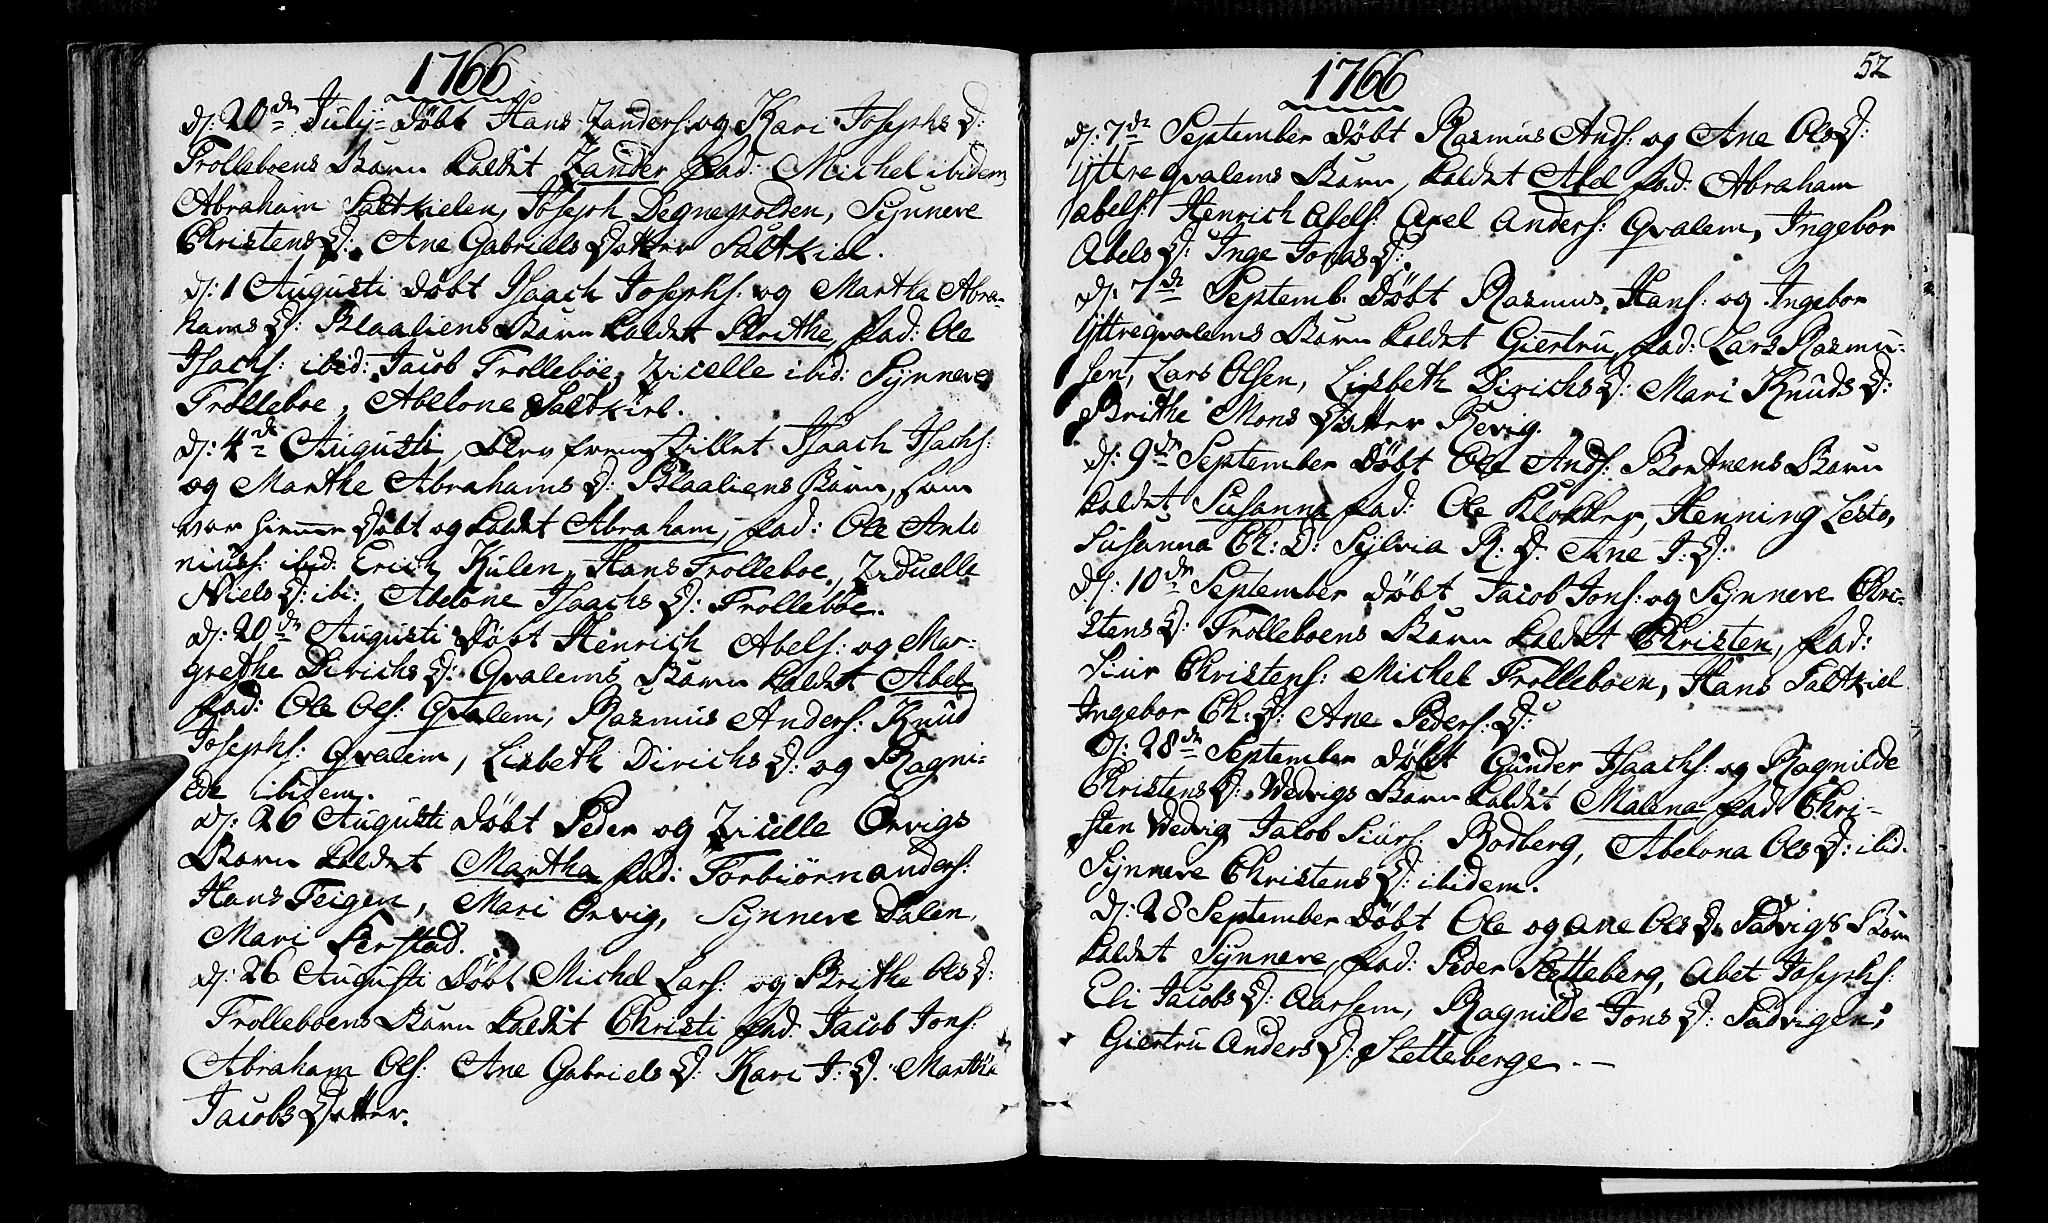 1766
d: 20de Julij Døbt Hans Zanders: og Kari Josephs D:
Trolleboens Barn kaldet Zander fad: Michel ibidem
Abraham Saltkielen, Joseph Degnepolden, Synneve
Christens D: Ane Gabriels Datter Saltkiel.
d: 1 Augusti Døbt Isaach Josephs: og Martha Abra-
hams D: Blaaliens Barn kaldet Brithe, fad: Ole
Isachs: ibid: Jacob Trolleboe, Zicelle ibid: Synneve
Trolleboe, Abelone Saltkiel.
d: 4de Augusti, blev fremstillet Isaach Isachs:
og Marthe Abrahams D: Blaaliens Barn, som
var hiemme Døbt og kaldet Abraham, fad: Ole Anto
niuss: ibid: Erich Kulen, Hans Trolleboe, Ziduelle
Niels D: ibi: Abelone Isaachs D: Trolleboe.
d: 20de Augusti Døbt Henrich Abels: og Mar-
grethe Dirichs D: Qvalems Barn kaldet Abel,
fad: Ole Ols: Qvalem, Rasmus Anders: Knud
Josephs: Qvalem, Lisbeth Dirichs D: og Ragni-
lde ibidem.
d: 26 Augusti Døbt Peder og Zicelle Ørvigs
Barn kaldet Martha fad: Torbiørn anders:
Hans Teigen, Mari Ørvig, Synneve Dalen,
Mari Ferstad.
d: 26 Augusti Døbt Michel Lars: og Brithe Ols D:
Trolleboens Barn kaldet Christi fad: Jacob Jons:
Abraham Ols: Ane Gabriels D: Kari J: D. Martha
Jacobs Datter.
1766
52
d: 7de September Døbt Rasmus Ands: og Ane Ols D:
Yttreqvalems Barn, kaldet Abel fad: Abraham
abels: Henrich Abels: Axel Anders: Qvalem, Ingebor
Abels D: Inge Jonas D:
d: 7de Septemb. Døbt Rasmus Hans: og Ingebor
Yttreqvalems Barn kaldet Giertru, fad: Lars Rasmu-
sen, Lars Olsen, Lisbeth Dirichs D: Mari Knuds D:
Brithe Mons Datter Revig.
d: 9de September Døbt Ole Ands: Bortnens Barn
kaldet Susanna fad: Ole Klokker, Henning Lesto,
Susanna Ch: D: Sylvia R: D. Ane J: D:
d: 10de September Døbt Jacob Jons: og Synneve Chri-
stens D: Trolleboens Barn kaldet Christen, fad:
Siur Christens: Michel Trolleboen, Hans Saltkiel
Ingebor Ch: D: Ane Peders: D:
d: 28de September Døbt Gunder Isaachs: og Ragnilde
Christens D: Wedvigs Barn kaldet Malena fad Chri-
sten Wedvig Jacob Siurs: Rodberg, Abelona Ols D: ibid.
Synneve Christens D: ibidem.
d: 28 September Døbt Ole og ane Ols D: Sadvigs Barn
kaldet Synneve, fad: Peder Stetteberg, Abet Josephs:
Eli Jacobs D: Aarsem, Ragnilde Jons D: Sadvigen,
Giertru Anders D: Stetteberge. -